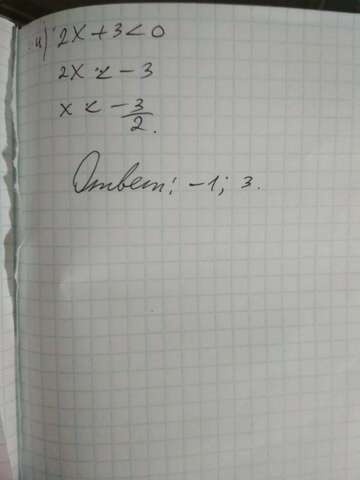 и) 2x+3<0
2x < -3
x < -3/2.
Ответ: -1; 3.